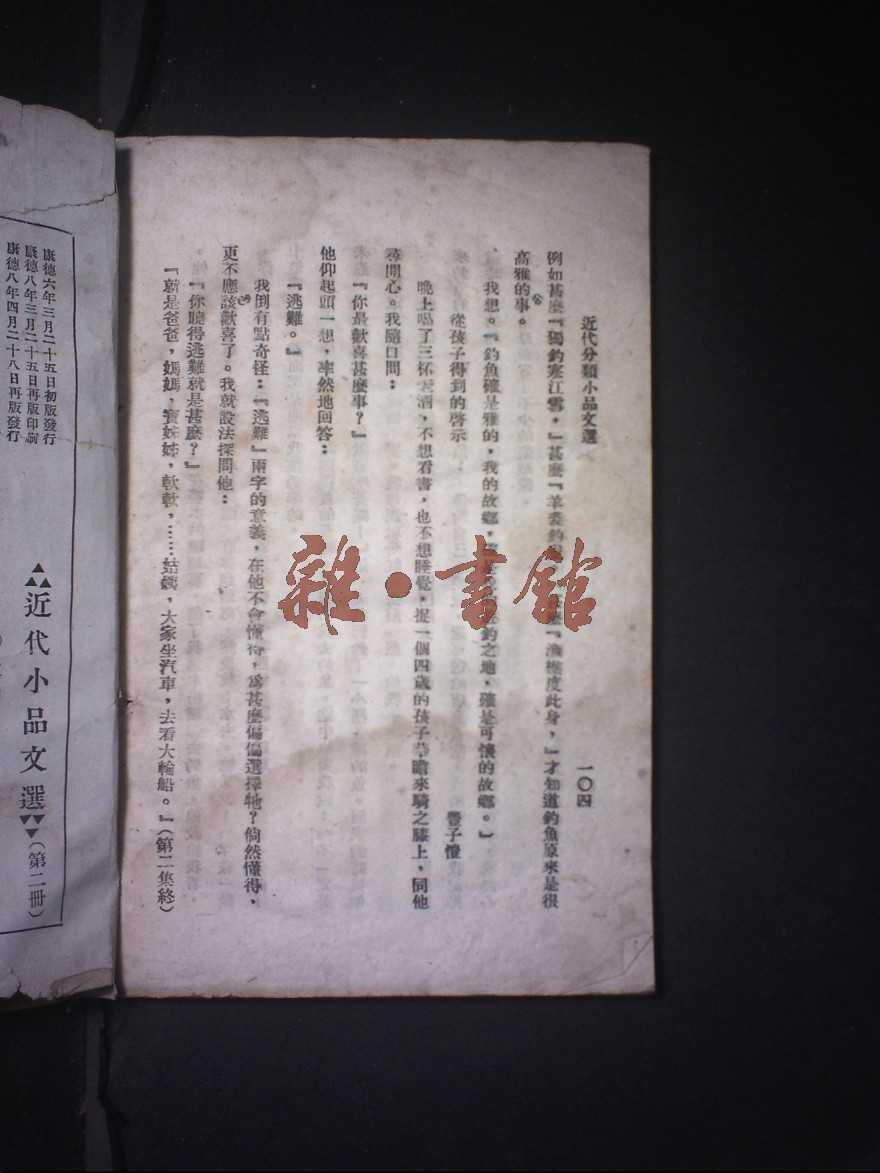 近代分類小品文選
一〇四
例如甚麼『獨釣寒江雪，』甚麼『羊裘釣『漁樵度此身，』才知道釣魚原來是很
高雅的事。
我想。『釣魚確是雅的，我的故鄉，釣之地，確是可懷的故鄉。』
從孩子得到的啓示
豐子愷
晚上喝了三杯老酒，不想看書，也不想睡覺，捉一個四歲的孩子華瞻來騎之膝上，同他
尋開心。我隨口問：
『你最歡喜甚麼事？』
他仰起頭一想，率然地回答：
『逃難。』
我倒有點奇怪：『逃難』兩字的意義，在他不會懂得，爲甚麼偏偏選擇牠？倘然懂得，
更不應該歡喜了。我就設法探問他：
『你曉得逃難就是甚麼？』
『就是爸爸，媽媽，寶姊姊，軟軟，……姑娘，大家坐汽車，去看大輪船。』（第二集終）
康德六年三月二十五日初版發行
康德八年三月二十五日再版印刷
康德八年四月二十八日再版發行
近代小品文選（第二冊）
雜·書館